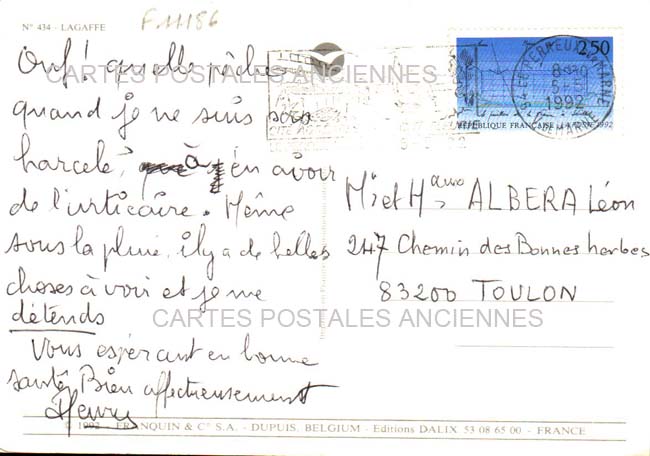 N° 434 - LAGAFFE
F 11186
Ouf! quelle pêche
quand je ne suis pas
harcelé, à en avoir
de l'urticaire. Même
sous la pluie, il y a de belles
choses à voir et je me
détends
Vous espérant en bonne
santé, Bien affectueusement
Henry
2,50
RÉPUBLIQUE FRANÇAISE
1992
LE PERREUX SUR MARNE
1992
VAL DE MARNE
M. et Mme ALBERA Léon
247 Chemin des Bonnes herbes
83200 TOULON
CARTES POSTALES ANCIENNES
CARTES POSTALES ANCIENNES
© 1992 - FRANQUIN & C° S.A. - DUPUIS, BELGIUM - Editions DALIX 53 08 65 00 - FRANCE